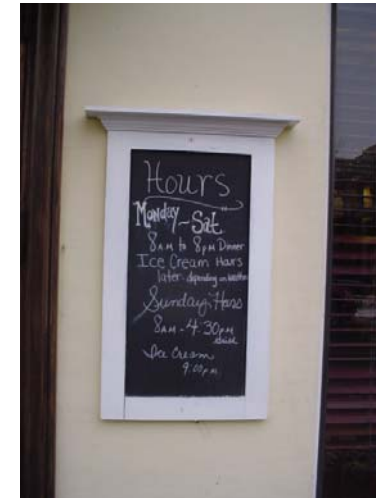 Hours
Monday - Sat.
8AM to 8PM Dinner
Ice Cream Hours
later depending on weather
Sunday Hours
8AM - 4:30PM
Ice Cream
9:00PM